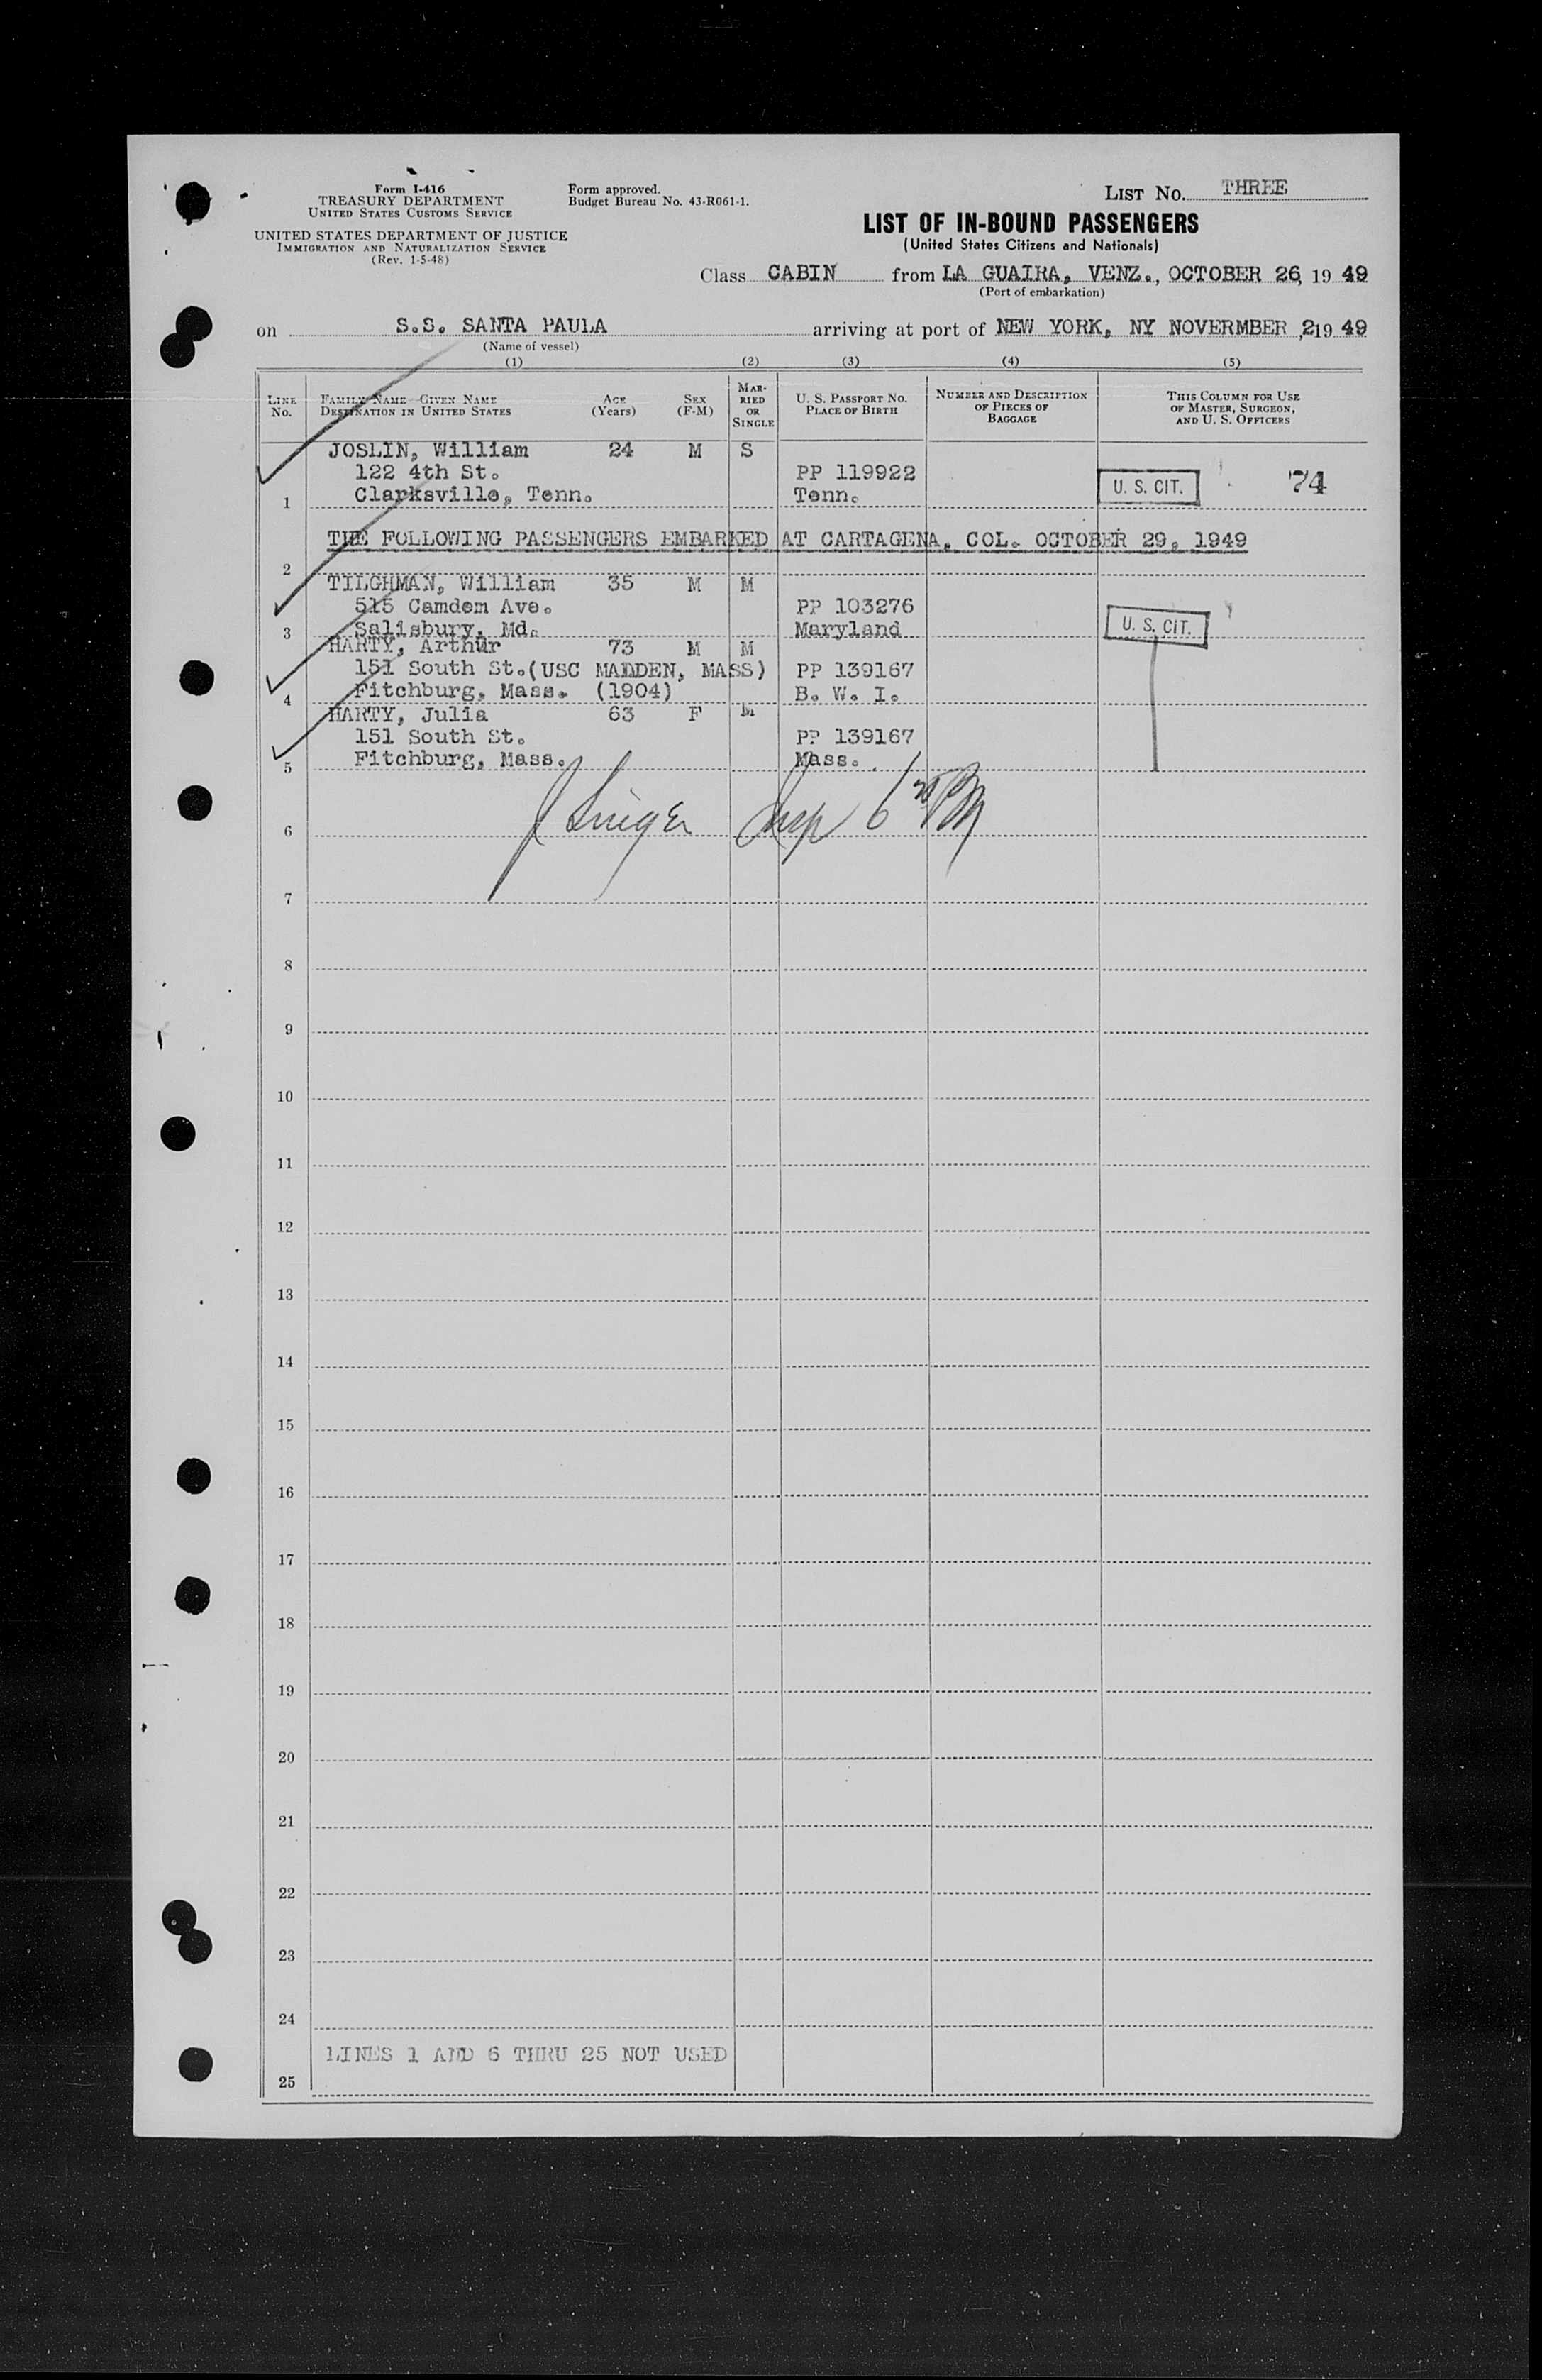 Form I-416
TREASURY DEPARTMENT
UNITED STATES CUSTOMS SERVICE
UNITED STATES DEPARTMENT OF JUSTICE
IMMIGRATION AND NATURALIZATION SERVICE
(Rev. 1-5-48)
Form approved.
Budget Bureau No. 43-R061-1.
LIST No. THREE
LIST OF IN-BOUND PASSENGERS
(United States Citizens and Nationals)
Class CABIN from LA GUAIRA, VENZ., OCTOBER 26, 1949
(Port of embarkation)
on S.S. SANTA PAULA arriving at port of NEW YORK, NY NOVERMBER 2, 1949
(Name of vessel)
(1) (2) (3) (4) (5)
LINE No. FAMILY NAME—GIVEN NAME DESTINATION IN UNITED STATES AGE (Years) SEX (F-M) MARRIED OR SINGLE U. S. PASSPORT NO. PLACE OF BIRTH NUMBER AND DESCRIPTION OF PIECES OF BAGGAGE THIS COLUMN FOR USE OF MASTER, SURGEON, AND U. S. OFFICERS
JOSLIN, William 24 M S
122 4th St. PP 119922
1 Clarksville, Tenn. Tenn. U. S. CIT. 74
THE FOLLOWING PASSENGERS EMBARKED AT CARTAGENA, COL. OCTOBER 29, 1949
2
TILGHMAN, William 35 M M
515 Camdem Ave. PP 103276
3 Salisbury, Md. Maryland U. S. CIT.
HARTY, Arthur 73 M M
151 South St.(USC MALDEN, MASS) PP 139167
4 Fitchburg, Mass. (1904) B. W. I.
HARTY, Julia 63 F M
151 South St. PP 139167
5 Fitchburg, Mass. Mass.
J Singer Insp
6
7
8
9
10
11
12
13
14
15
16
17
18
19
20
21
22
23
24
LINES 1 AND 6 THRU 25 NOT USED
25